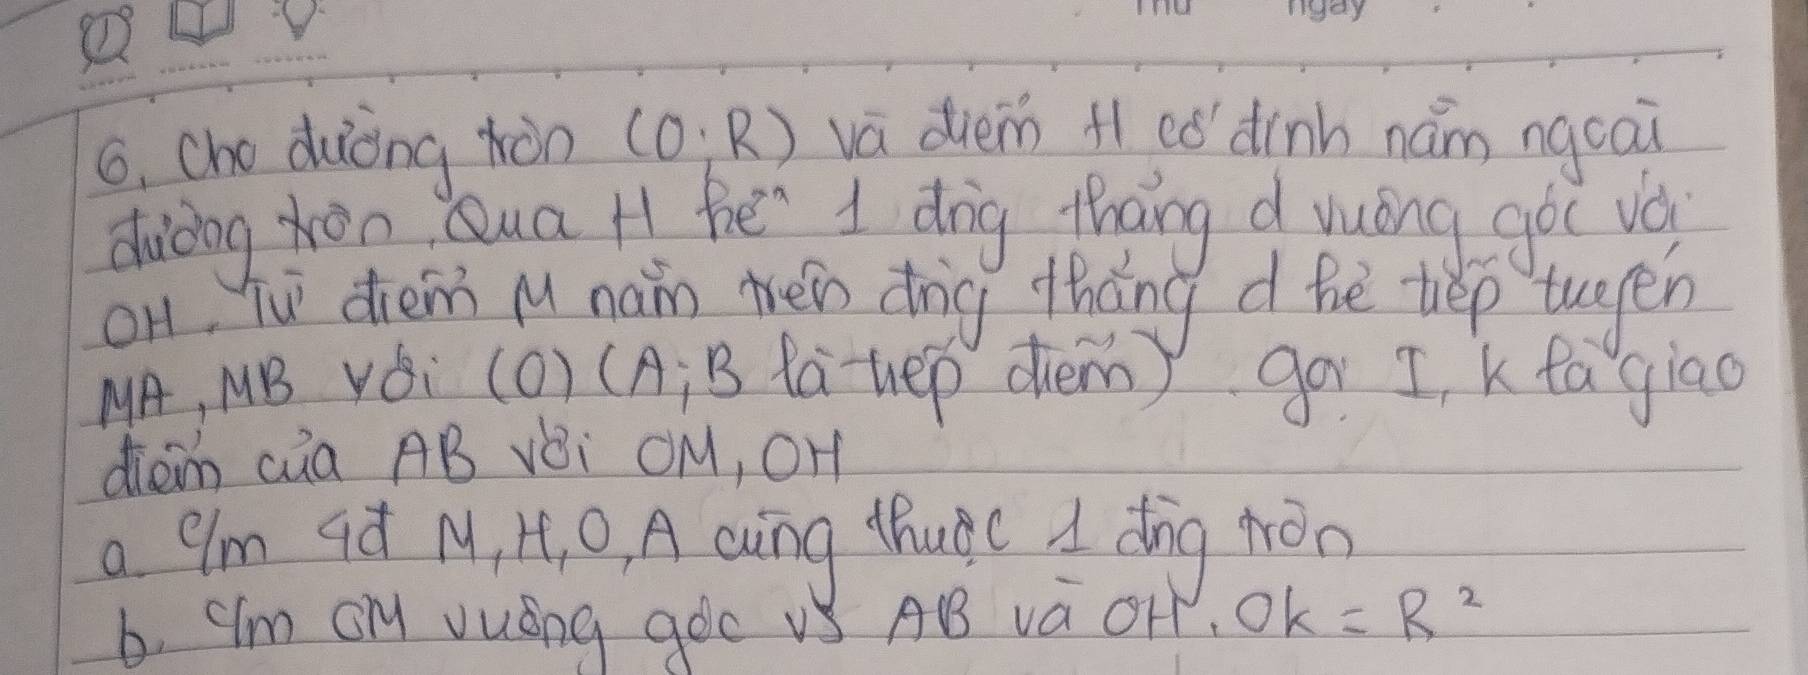 Thứ ngày
6, Cho đường tròn (O;R) và điểm H cố định nằm ngoài
đường tròn. Qua H kẻ 1 đng thẳng d vuông góc với
OH. Từ điểm M nằm trên đng thẳng d kẻ tiếp tuyến
MA, MB với (O) (A;B là tiếp điểm). gọi I, K là giao
điểm của AB với OM, OH
a. c/m 4đ M, H, O, A cùng thuộc 1 đng tròn
b. c/m OM vuông góc vs AB và OH. OK = R²